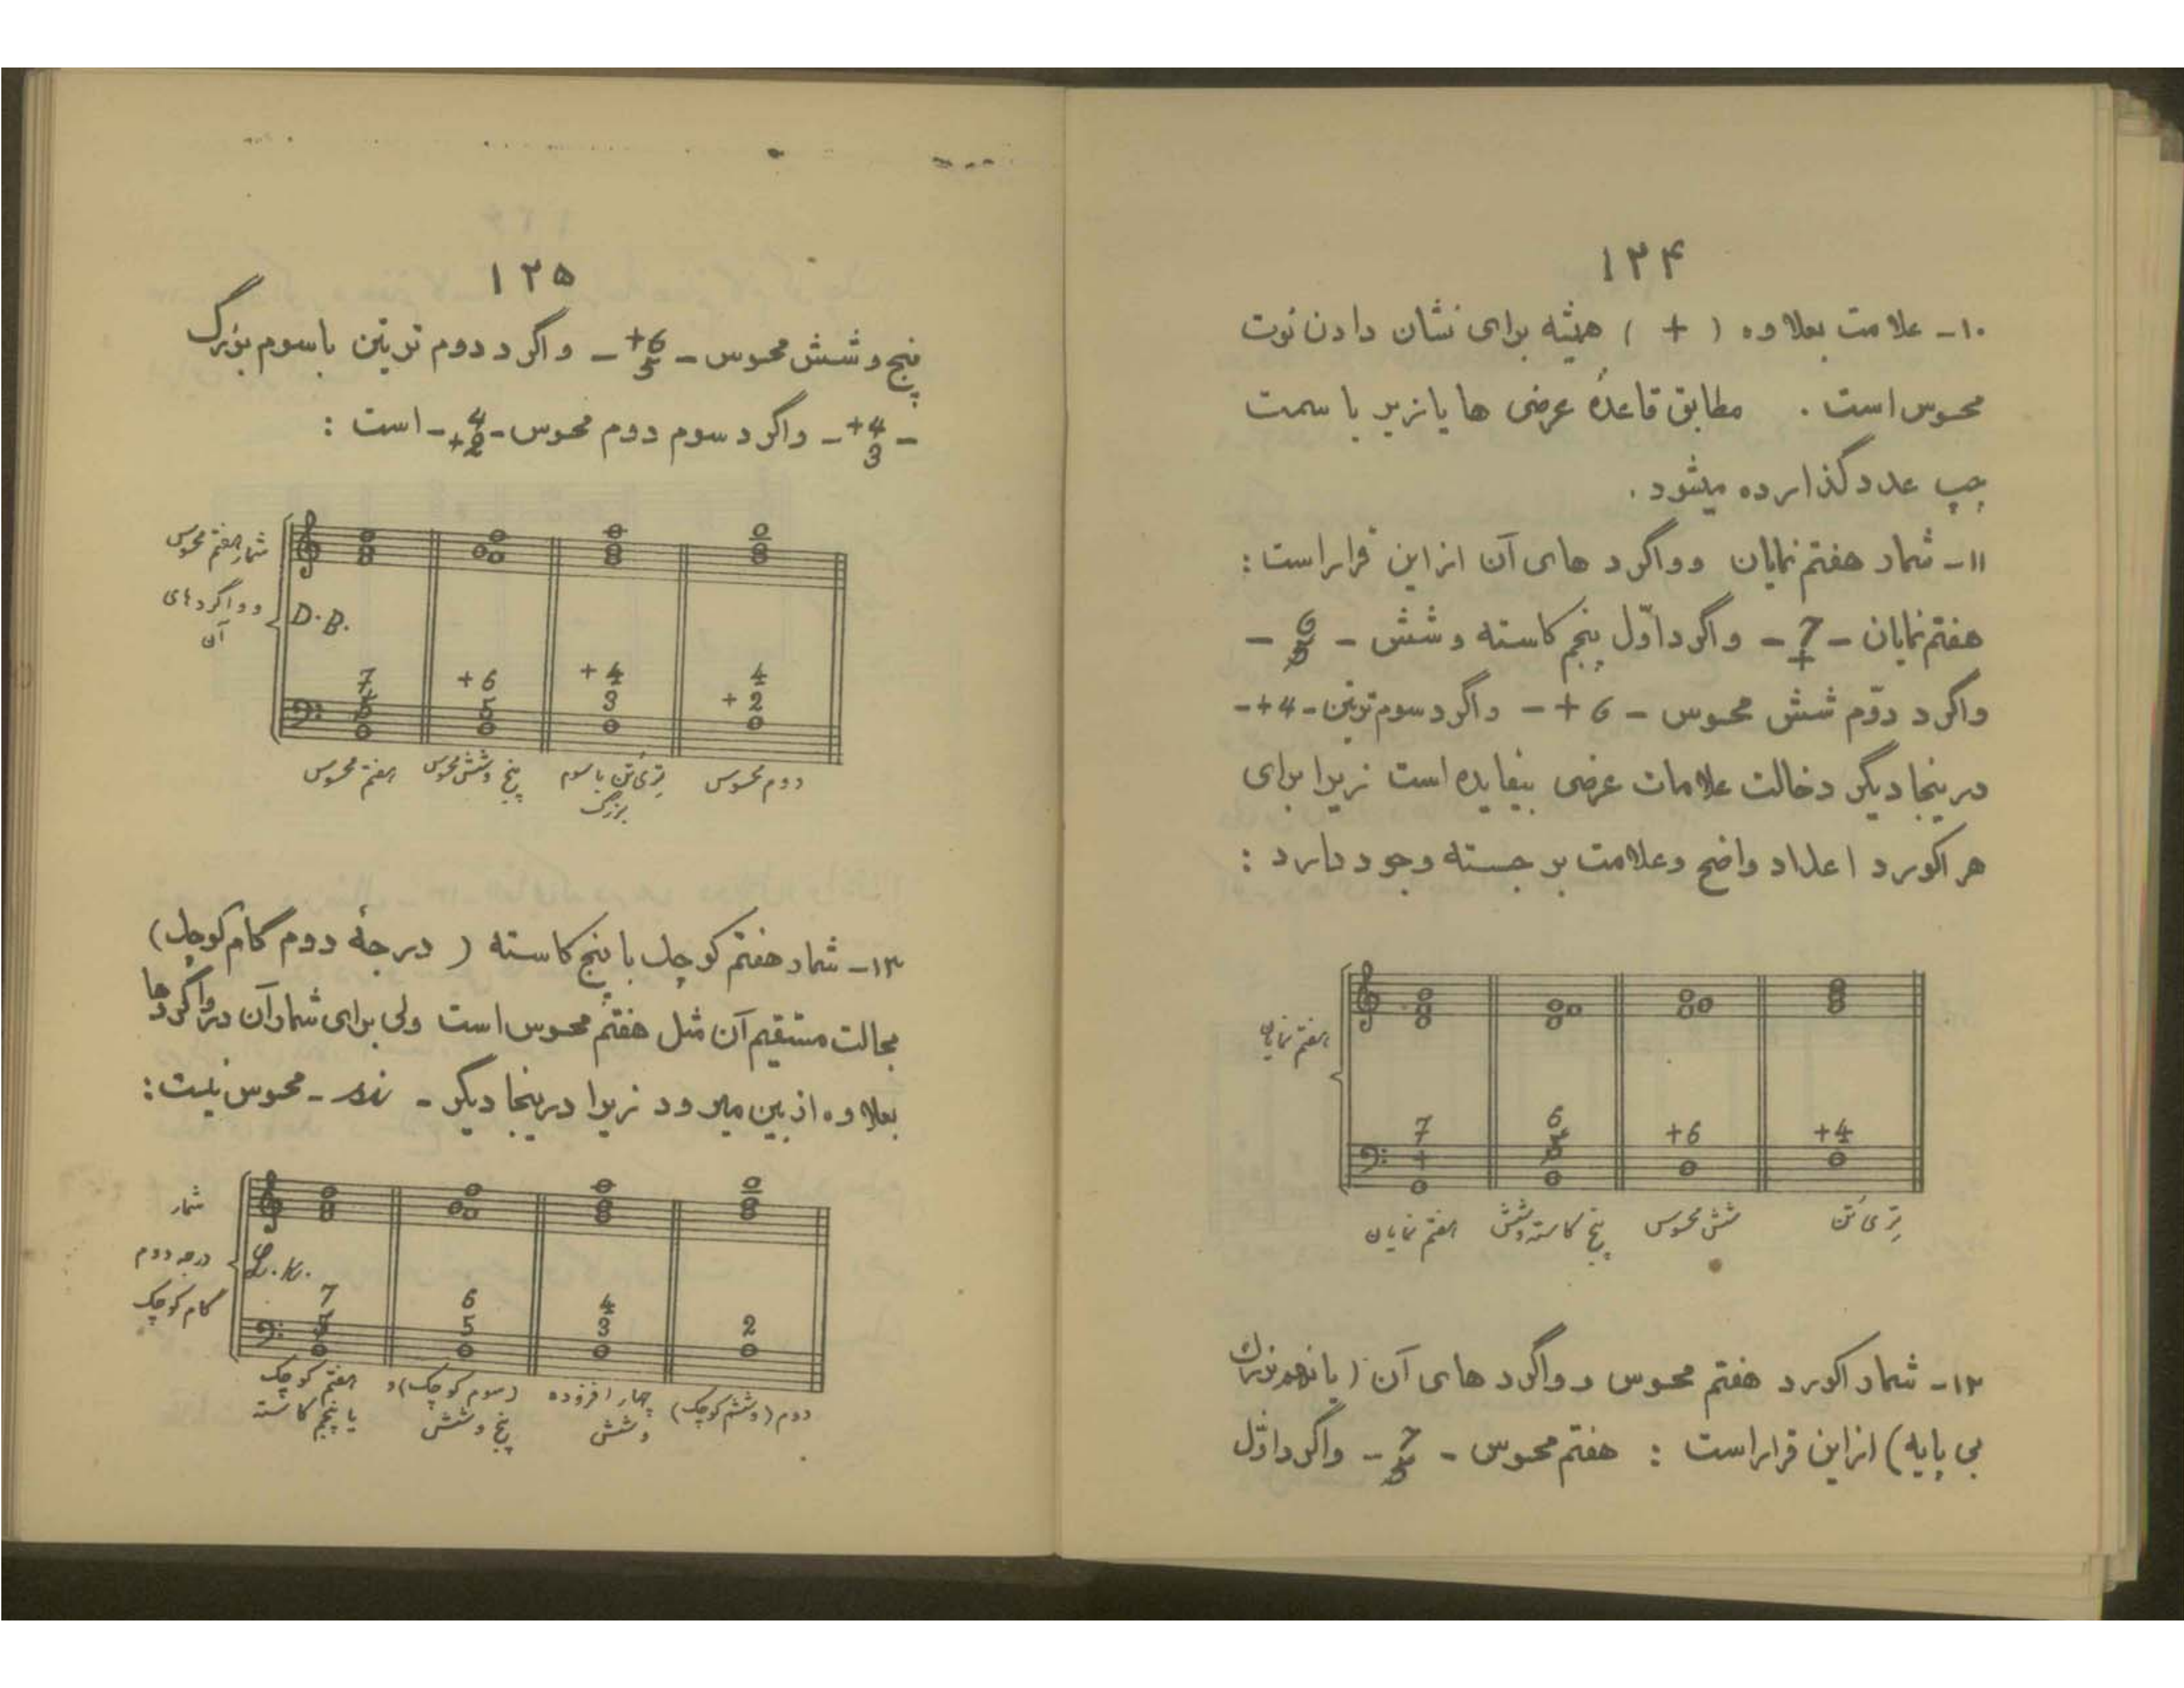 ۱۲۴
۱۰- علامت بعلاوه ( + ) همیشه برای نشان دادن نوت
محسوس است . مطابق قاعدهٔ عرضی ها یا زیر یا سمت
چپ عدد گذارده میشود .
۱۱- شمار هفتم نمایان و واگرد های آن از این قرار است :
هفتم نمایان - 7+ - واگرد اوّل پنجم کاسته و شش - 6 5 -
واگرد دوّم شش محسوس - 6 + - واگرد سوم تریتن - 4 + -
در ینجا دیگر دخالت علامات عرضی بیفایده است زیرا برای
هر اکورد اعداد واضح و علامت برجسته وجود دارد :
هفتم نمایان
7 6 +6 +4
+ 5
هفتم نمایان پنج کاسته و شش شش محسوس تری تن
۱۲- شمار اکورد هفتم محسوس و واگرد های آن ( یا نهم بزرگ
بی پایه ) از این قرار است : هفتم محسوس - 7 5 - واگرد اوّل
۱۲۵
پنج و شش محسوس - +6 5 - واگرد دوم تریتن با سوم بزرگ
- +4 3 - واگرد سوم دوم محسوس - 4 +2 - است :
شمار هفتم محسوس
و واگردهای
آن
D.B.
7 +6 +4 4
5 5 3 +2
هفتم محسوس پنج و شش محسوس تری تن با سوم بزرگ دوم محسوس
۱۳- شمار هفتم کوچک با پنج کاسته ( درجهٔ دوم گام کوچک )
بحالت مستقیم آن مثل هفتم محسوس است ولی برای شمار آن در واگرد ها
بعلاوه از بین میرود زیرا در ینجا دیگر - si - محسوس نیست :
شمار
درجه دوم
گام کوچک
7 6 4
5 5 3 2
هفتم کوچک با پنجم کاسته (سوم کوچک) و پنج و شش چهار افزوده و شش دوم (و ششم کوچک)